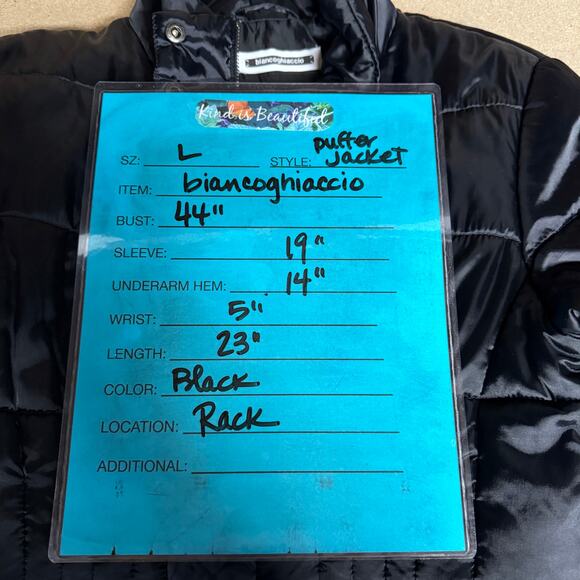 biancoghiaccio
Kind is Beautiful
SZ: L STYLE: puffer jacket
ITEM: biancoghiaccio
BUST: 44"
SLEEVE: 19"
UNDERARM HEM: 14"
WRIST: 5"
LENGTH: 23"
COLOR: Black
LOCATION: Rack
ADDITIONAL: